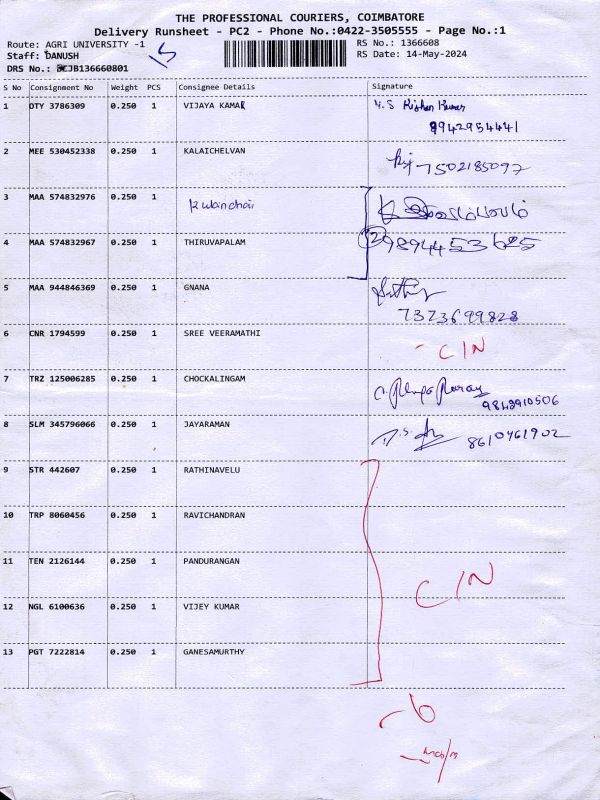 THE PROFESSIONAL COURIERS, COIMBATORE
Delivery Runsheet - PC2 - Phone No.:0422-3505555 - Page No.:1
Route: AGRI UNIVERSITY -1
RS No.: 1366608
Staff: DANUSH
RS Date: 14-May-2024
DRS No.: JB136660801
S No Consignment No Weight PCS Consignee Details Signature
1 OTY 3786309 0.250 1 VIJAYA KAMAR
9942954441
2 MEE 530452338 0.250 1 KALAICHELVAN
7502185097
3 MAA 574832976 0.250 1
4 MAA 574832967 0.250 1 THIRUVAPALAM 9894453625
5 MAA 944846369 0.250 1 GNANA
7373699828
6 CNR 1794599 0.250 1 SREE VEERAMATHI
- C/N
7 TRZ 125006285 0.250 1 CHOCKALINGAM
9842910506
8 SLM 345796066 0.250 1 JAYARAMAN 8610461902
9 STR 442607 0.250 1 RATHINAVELU
10 TRP 8060456 0.250 1 RAVICHANDRAN
11 TEN 2126144 0.250 1 PANDURANGAN
C/N
12 NGL 6100636 0.250 1 VIJEY KUMAR
13 PGT 7222814 0.250 1 GANESAMURTHY
- 6